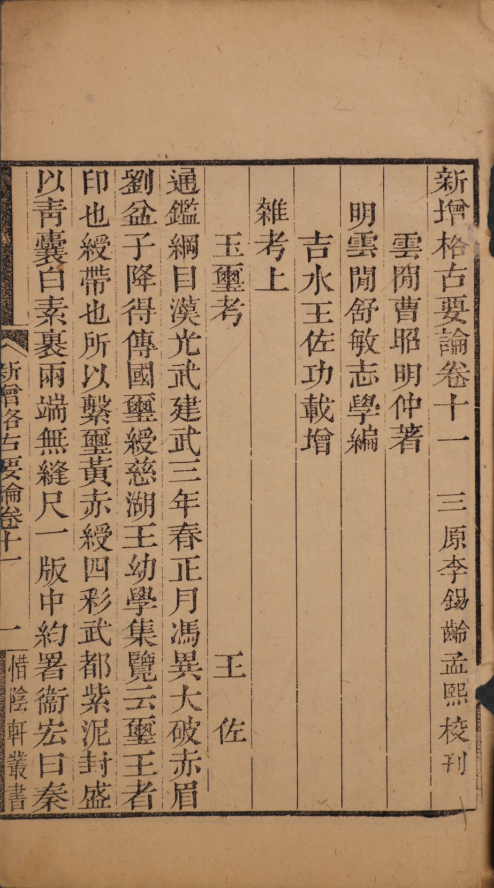 新增格古要論卷十一 三原李錫齡孟熙校刊
雲閒曹昭明仲著
明雲閒舒敏志學編
吉水王佐功載增
雜考上
玉璽考 王佐
通鑑綱目漢光武建武三年春正月馮異大破赤眉
劉盆子降得傳國璽綬慈湖王幼學集覽云璽王者
印也綬帶也所以繫璽黃赤綬四彩武都紫泥封盛
以靑囊白素裏兩端無縫尺一版中約署衞宏曰秦
新增格古要論卷十一 一 惜陰軒叢書